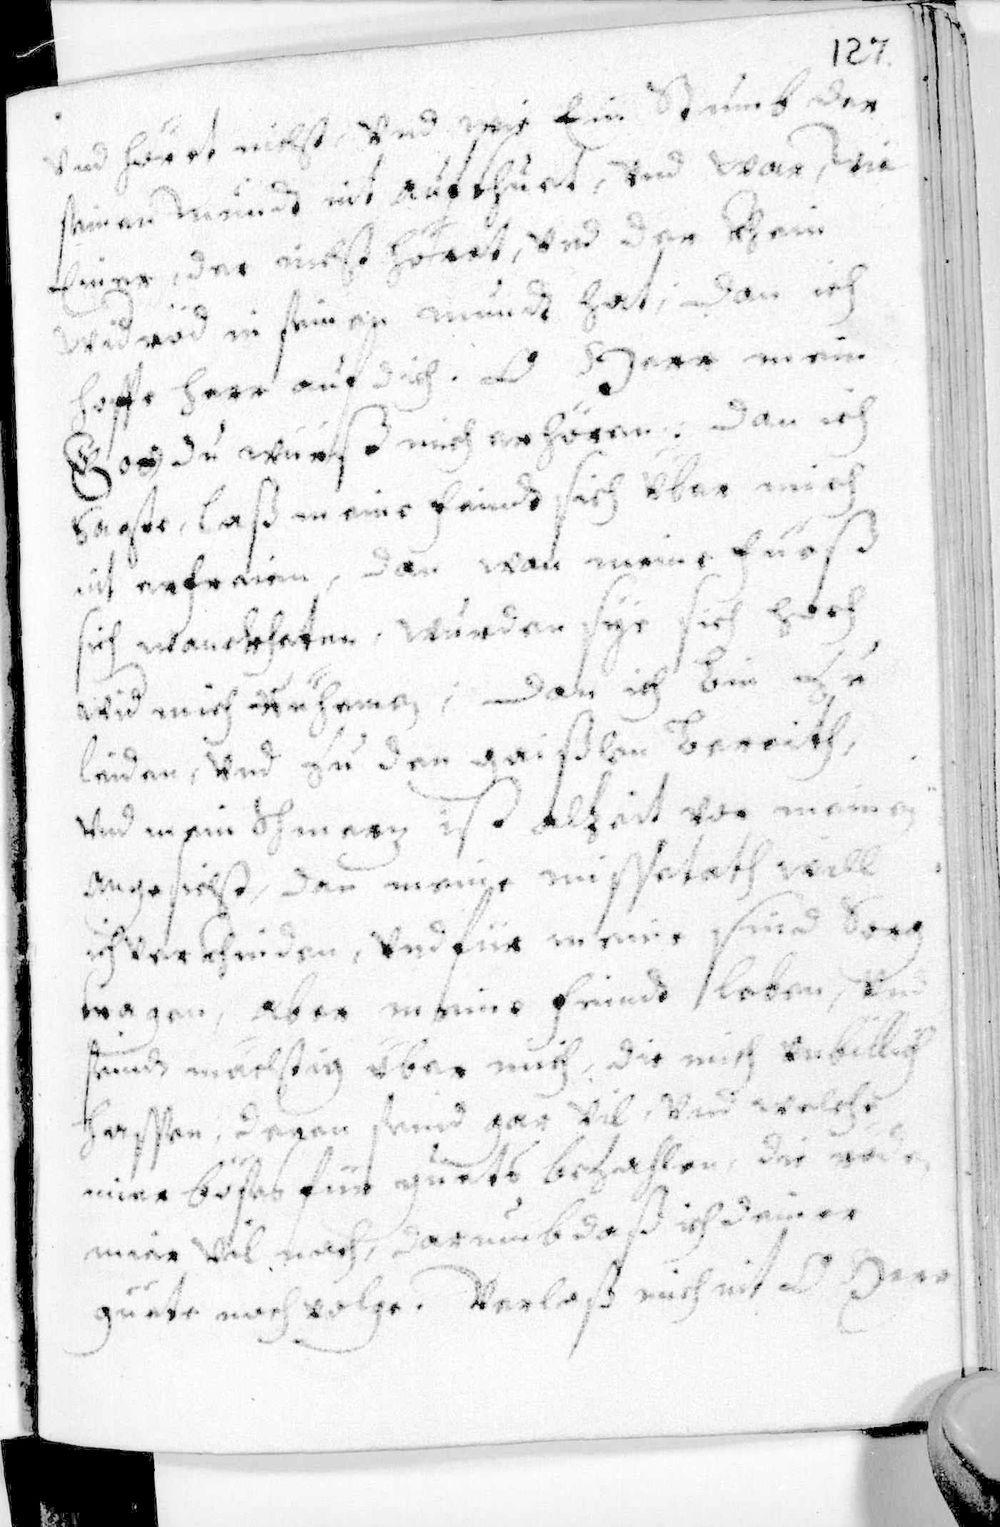 127.
Vnd höret nichst, Vnd wie Ein Stumb der
seinen mundt nit aufthuet, Vnd war, wie
Einer, der nichst höret, Vnd der khein
widröd in seinen mundt hat; dan ich
hoffe herr auf dich. O Herr mein
Gott du würst mich erhören: dan ich
Sagte, laß meine feindt sich über mich
nit erfreien, dan wan meine füeß
sich wanckheten, wurden sye sich hoch
wid mich rüehmen; dan ich bin zu
leiden, Vnd zu den geißlen bereith,
Vnd mein schmerz ist alzeit vor meinen
angesichst, dan meine missetath will
ich verkhinden, Vnd für meine sünd Sorg
tragen, aber meine feindt leben, Vnd
seind mächstig über mich, die mich Vnbillich
hassen, deren seind gar Vil, Vnd welche
mier böses für guets bezahlen, die röden
mier Vil nach, darumb daß ich deiner
güete nachvolge. Verlaß mich nit O Herr